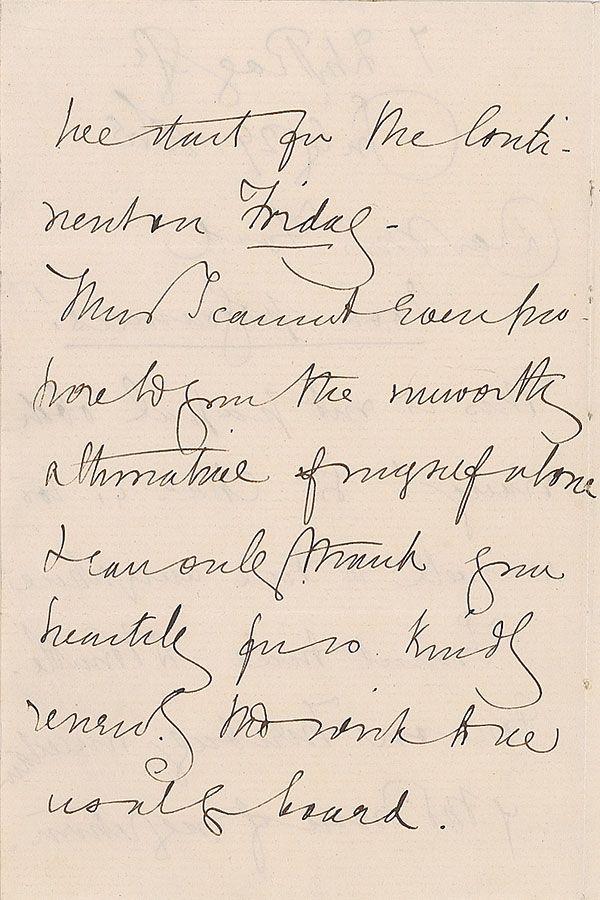 we start for the Conti-
nent on Friday -
Thus I cannot even pro-
pose to you the unworthy
alternative of myself alone
I can only thank you
heartily for so kindly
renewing the wish to see
us all board.